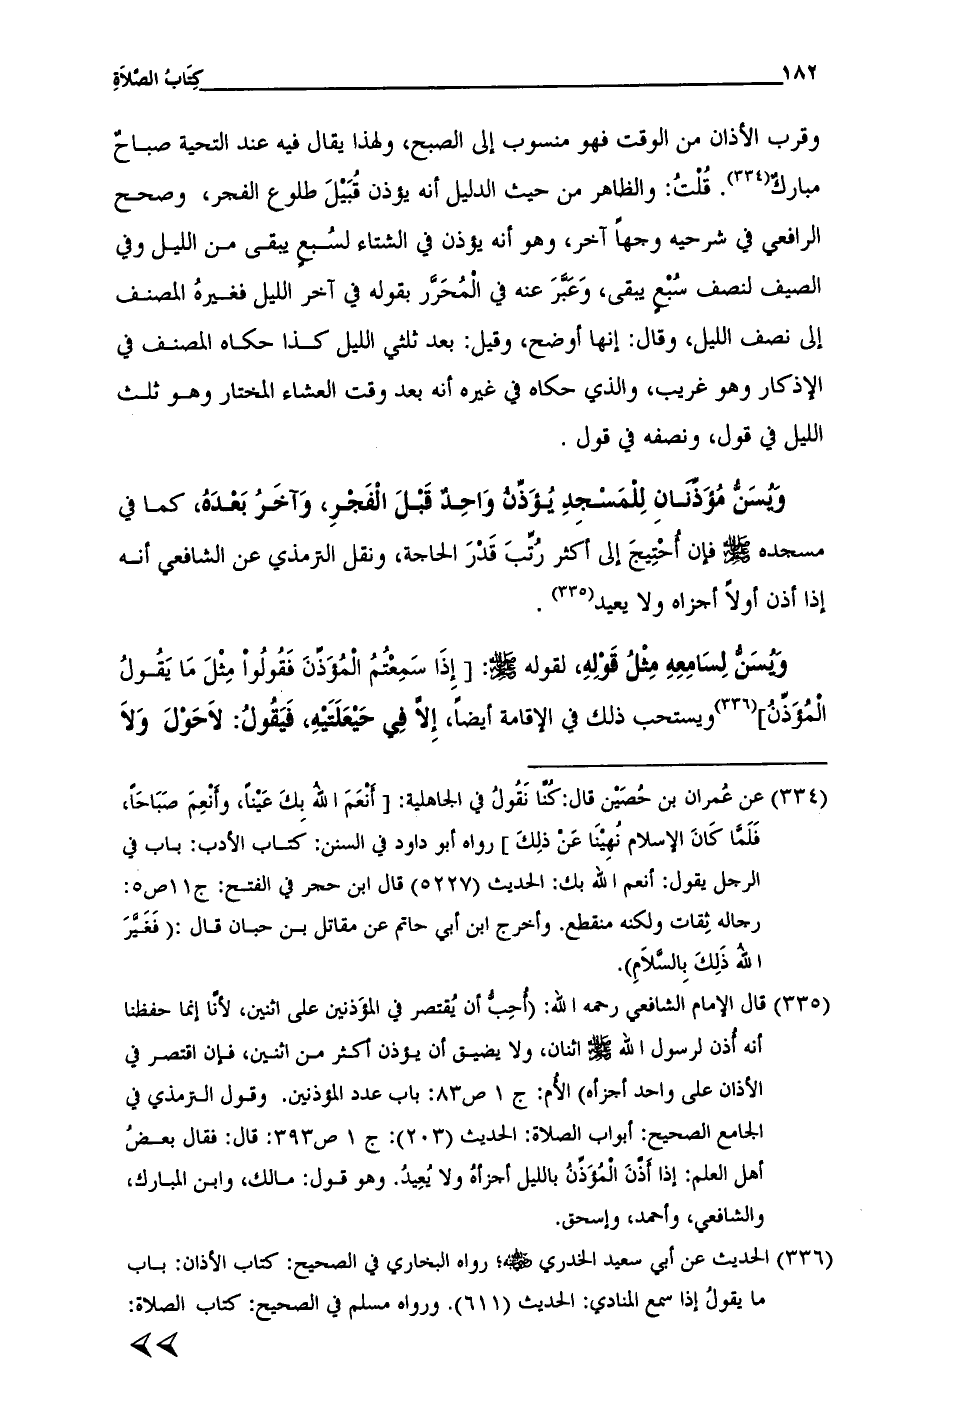 ١٨٢ كِتَابُ الصَّلاَةِ
وقرب الأذان من الوقت فهو منسوب إلى الصبح، ولهذا يقال فيه عند التحية صباحٌ
مباركٌ(٣٣٤). قُلْتُ: والظاهر من حيث الدليل أنه يؤذن قُبَيْلَ طلوع الفجر، وصحح
الرافعي في شرحيه وجهاً آخر، وهو أنه يؤذن في الشتاء لسُبعٍ يبقى من الليل وفي
الصيف لنصف سُبْعٍ يبقى، وَعَبَّرَ عنه في الْمُحَرَّر بقوله في آخر الليل فغيرهُ المصنف
إلى نصف الليل، وقال: إنها أوضح، وقيل: بعد ثلثي الليل كذا حكاه المصنف في
الإذكار وهو غريب، والذي حكاه في غيره أنه بعد وقت العشاء المختار وهو ثلث
الليل في قول، ونصفه في قول .
وَيُسَنُّ مُؤَذِّنَانِ لِلْمَسْجِدِ يُؤَذِّنُ وَاحِدٌ قَبْلَ الْفَجْرِ، وَآخَرُ بَعْدَهُ، كما في
مسجده ﷺ فإن أُحْتِيجَ إلى أكثر رُتِّبَ قَدْرَ الحاجة، ونقل الترمذي عن الشافعي أنه
إذا أذن أولاً أجزاه ولا يعيد(٣٣٥) .
وَيُسَنُّ لِسَامِعِهِ مِثْلُ قَوْلِهِ، لقوله ﷺ: [ إِذَا سَمِعْتُمُ الْمُؤَذِّنَ فَقُولُواْ مِثْلَ مَا يَقُولُ
الْمُؤَذِّنُ](٣٣٦) ويستحب ذلك في الإقامة أيضاً، إِلاَّ فِي حَيْعَلَتَيْهِ، فَيَقُولُ: لاَحَوْلَ وَلاَ
(٣٣٤) عن عُمران بن حُصَيْن قال:كُنَّا نَقُولُ في الجاهلية: [ أَنْعَمَ ا للهُ بِكَ عَيْناً، وأَنْعِمَ صَبَاحَاً،
فَلَمَّا كَانَ الإسلام نُهِيْنَا عَنْ ذلِكَ ] رواه أبو داود في السنن: كتاب الأدب: باب في
الرجل يقول: أنعم ا لله بك: الحديث (٥٢٢٧) قال ابن حجر في الفتح: ج١١ص٥:
رجاله ثِقات ولكنه منقطع. وأخرج ابن أبي حاتم عن مقاتل بن حبان قال :( فَغَيَّرَ
ا للهُ ذَلِكَ بِالسَّلاَمِ).
(٣٣٥) قال الإمام الشافعي رحمه ا لله: (أُحِبُّ أن يُقتصر في المؤَذنين على اثنين، لأنَّا إنما حفظنا
أنه أُذن لرسول ا لله ﷺ اثنان، ولا يضيق أن يؤذن أكثر من اثنين، فإن اقتصر في
الأذان على واحد أجزأه) الأُم: ج ١ ص٨٣: باب عدد المؤذنين. وقول الترمذي في
الجامع الصحيح: أبواب الصلاة: الحديث (٢٠٣): ج ١ ص٣٩٣: قال: فقال بعضُ
أهل العلم: إذا أَذَّنَ الْمُؤَذِّنُ بالليل أجزأهُ ولا يُعِيدُ. وهو قول: مالك، وابن المبارك،
والشافعي، وأحمد، وإسحق.
(٣٣٦) الحديث عن أبي سعيد الخدري ﷺ؛ رواه البخاري في الصحيح: كتاب الأذان: باب
ما يقولُ إذا سمع المنادي: الحديث (٦١١). ورواه مسلم في الصحيح: كتاب الصلاة: